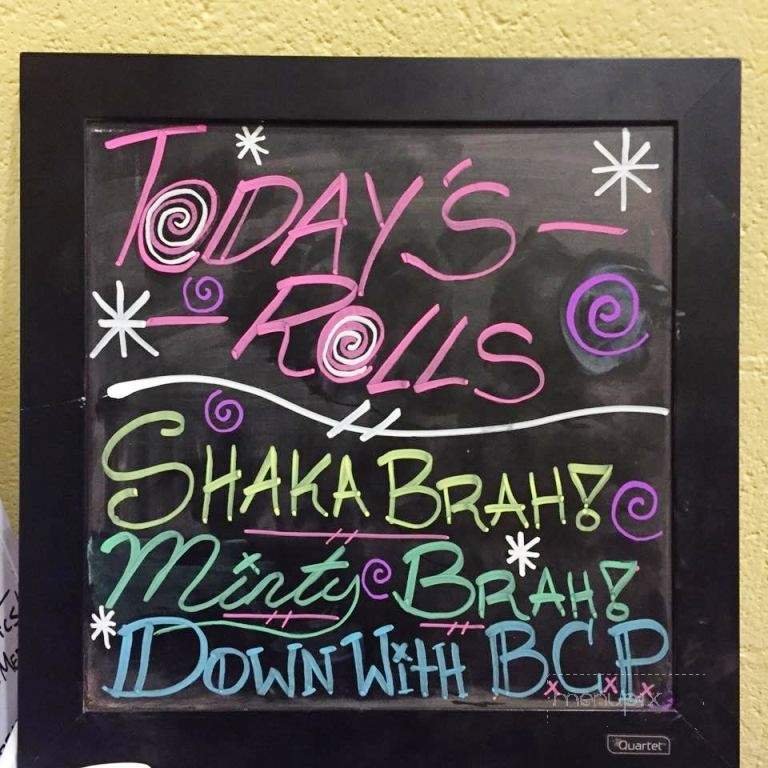 TODAY'S —
— ROLLS
SHAKA BRAH!
Minty BRAH!
DOWN WITH B.C.P.
menupix
Quartet